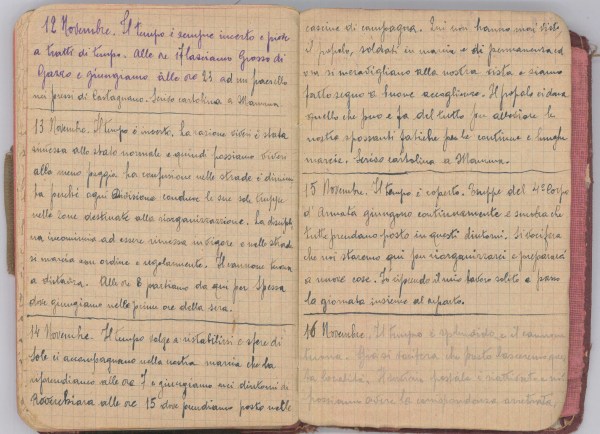 12 Novembre. Il tempo è sempre incerto e piove
a tratti di tempo. Alle ore 7 lasciamo Grosso di
Gazzo e giungiamo alle ore 23 ad un paesello
nei pressi di Castagnano. Scrivo cartolina a Mamma.
13 Novembre. Il tempo è incerto. La razione viveri è stata
messa allo stato normale e quindi possiamo vivere
alla meno peggio. La confusione nelle strade è diminui
ta perchè ogni Divisione conduce le sue sole truppe
nelle zone destinate alla riorganizzazione. La discipli
na incomincia ad essere rimessa in vigore e nelle strade
si marcia con ordine e regolarmente. Il cannone tuona
a distanza. Alle ore 8 partiamo da qui per Spessa
dove giungiamo nelle prime ore della sera.
14 Novembre. Il tempo volge a ristabilirsi e sfere di
Sole ci accompagnano nella nostra marcia che ha
riprendiamo alle ore 7 e giungiamo nei dintorni di
Roverchiara alle ore 15 dove prendiamo posto nelle
cascine di campagna. Qui non hanno mai visto
I popolo, soldati in marcia e di permanenza ed
ora si meravigliano alla nostra vista e siamo
fatto segno di buone accoglienze. Il popolo ci dona
quello che può e fa del tutto per alleviare le
nostre spossanti fatiche per le continue e lunghe
marcie. Scrivo cartolina a Mamma.
15 Novembre. Il tempo è coperto. Truppe del 4° Corpo
d'Armata giungono continuamente e sembra che
tutte prendano posto in questi dintorni. Si vocifera
che noi staremo qui per riorganizzarci e prepararci
a nuove cose. Io riprendo il mio lavoro solito e passo
la giornata insieme al reparto.
16 Novembre. Il tempo è splendido e il cannone
tuona. Qui si vocifera che presto lasceremo que
sta località. Il servizio postale è riattivato e noi
possiamo avere la corrispondenza arretrata.